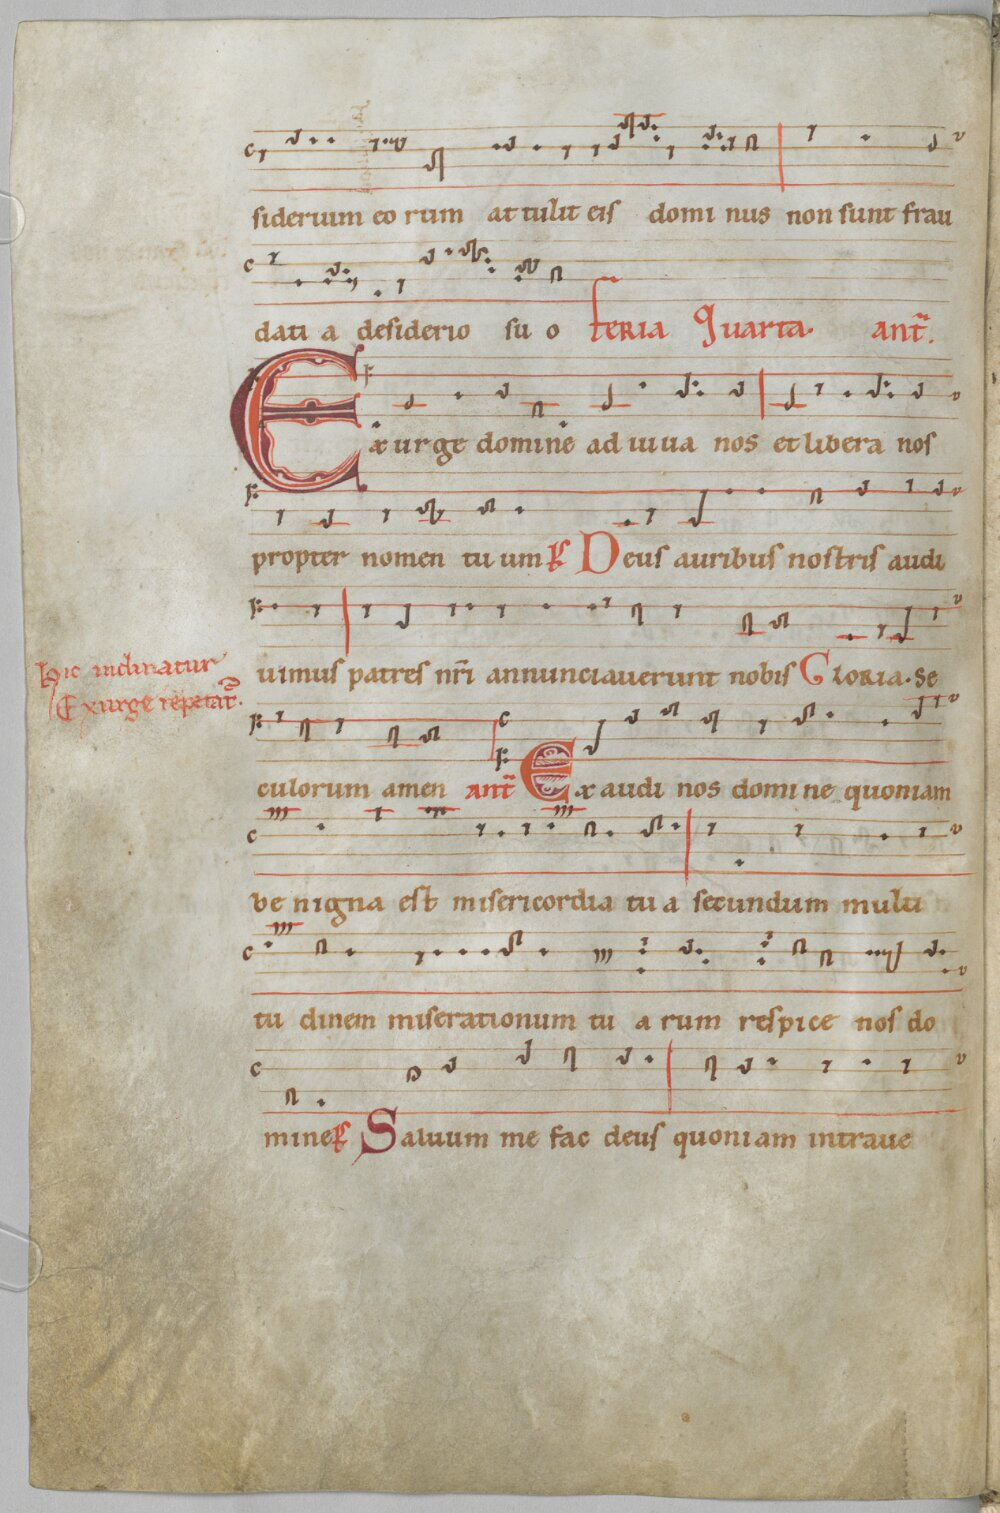 siderium eo rum at tulit eis domi nus non sunt frau
dati a desiderio su o feria Quarta. ant.
Exurge domine ad iuua nos et libera nos
propter nomen tu um Ps Deus auribus nostris audi
uimus patres nr̄i annunciauerunt nobis Gloria. Se
Hic inclinatur
Exurge repetat̄.
culorum amen ant̄ Exaudi nos domi ne quoniam
be nigna est misericordia tu a secundum multi
tu dinem miserationum tu a rum respice nos do
mine Ps Saluum me fac deus quoniam intraue